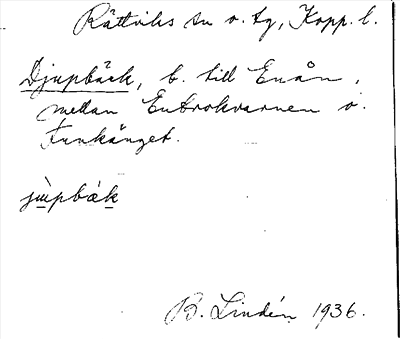 Rättviks sn o. tg, Kopp. l.
Djupbäck, b. till Enån,
mellan Enbrokvarnen o.
Funkänget.
jùpbäk
B. Lindén 1936.